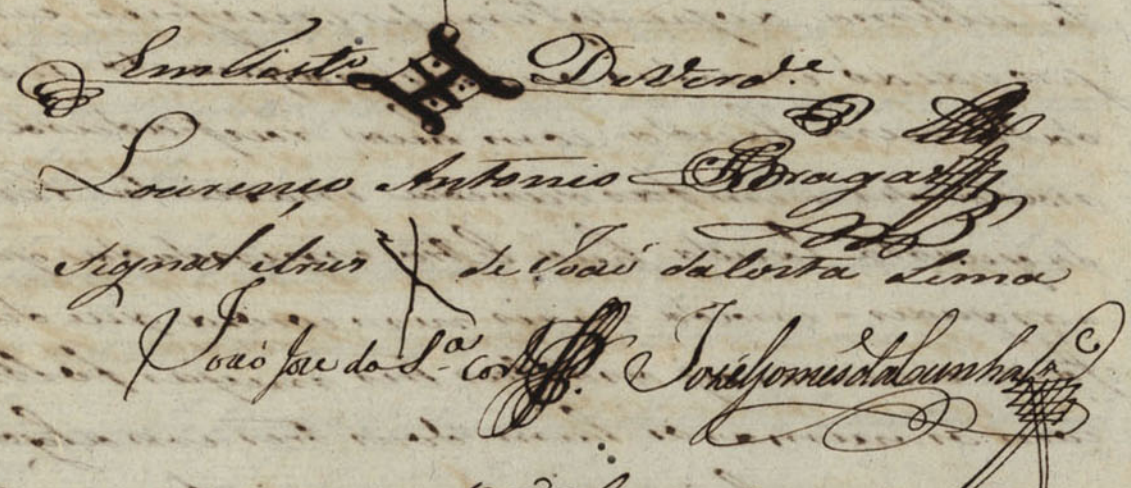 Em testo DeVerde
Lourenço Antonio Braga
signal de + de João da Costa Lima
João Joze da Sa Cort
Joze Gomes da Cunha